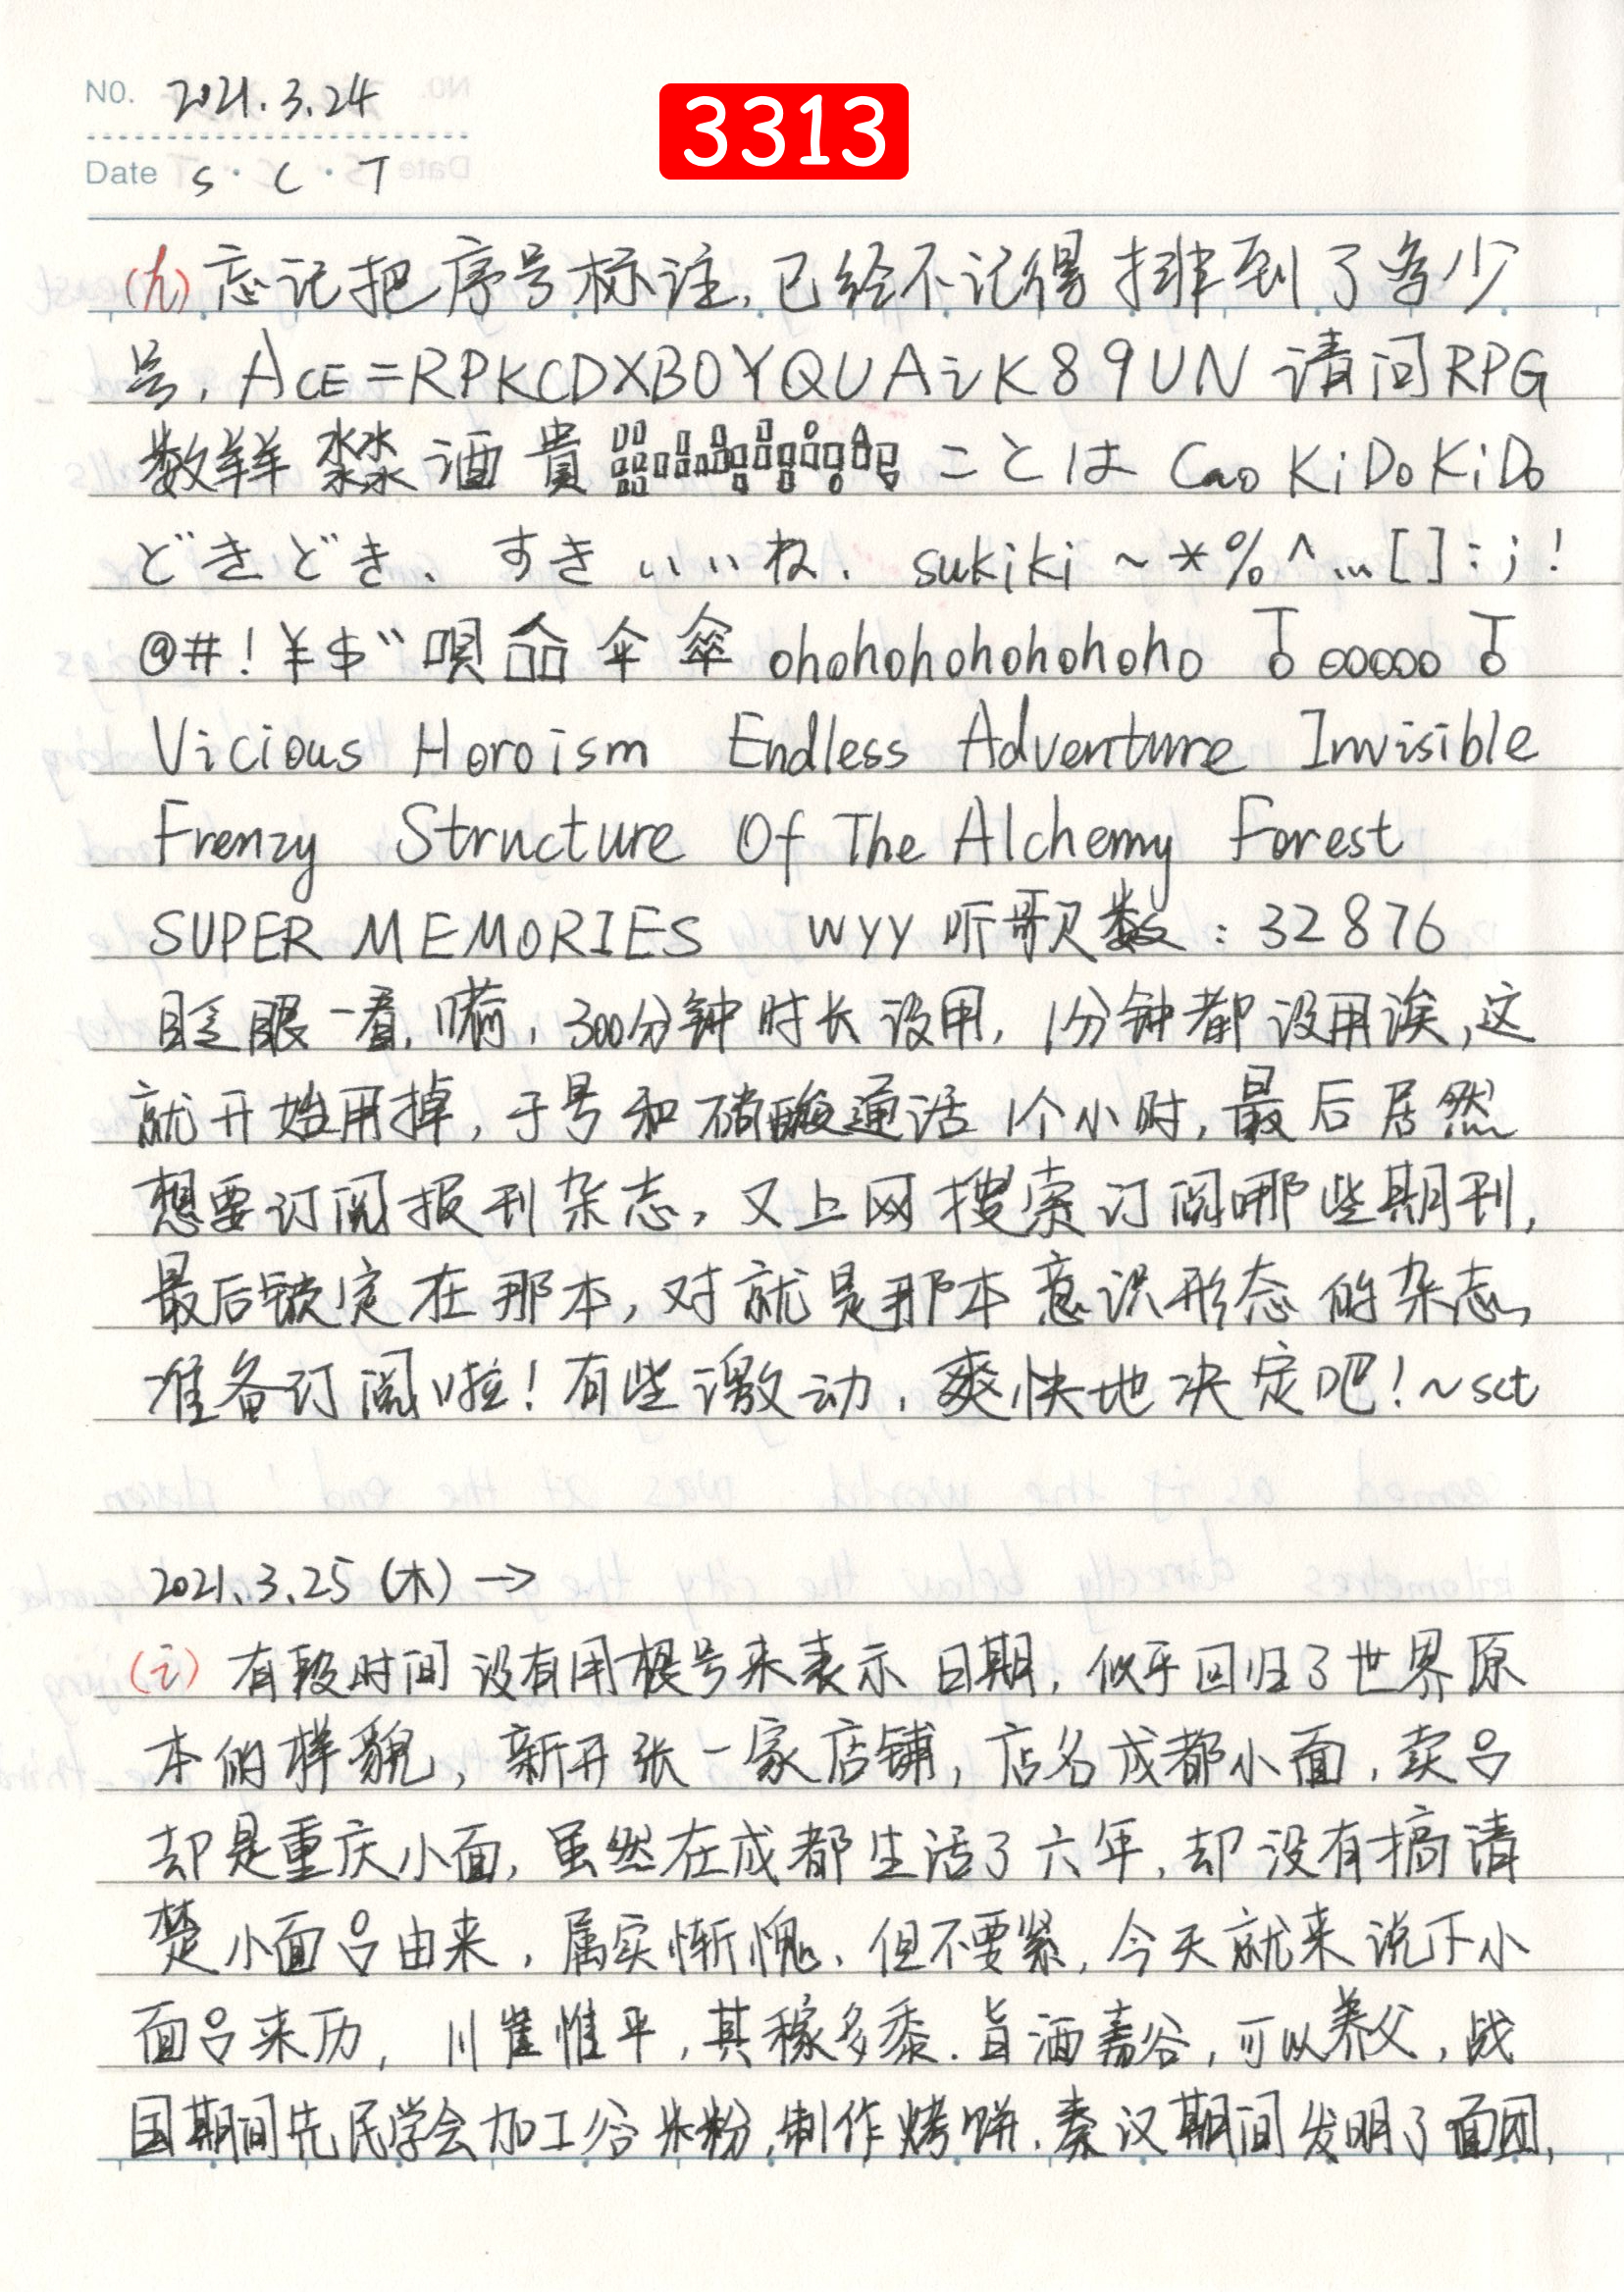 NO. 2021.3.24
3313
Date S · C · T
(九) 忘记把序号标注,已经不记得排到了多少
号, ACE=RPKCDXB0YQUAiK89UN 请问RPG
数 酒 貴 ことは Cao KiDoKiDo
どきどき、すきいいね、sukiki ~*%^…[]:;!
@#!¥$“ 唄 伞 傘 ohohohohohohoho ooooo
Vicious Horoism Endless Adventure Invisible
Frenzy Structure Of The Alchemy Forest
SUPER MEMORIES wyy听歌数:32876
眨眼一看,嗬,300分钟时长没用,1分钟都没用诶,这
就开始用掉,于号和硝酸通话1个小时,最后居然
想要订阅报刊杂志,又上网搜索订阅哪些期刊,
最后锁定在那本,对就是那本意识形态的杂志,
准备订阅啦!有些激动,爽快地决定吧!~sct
2021.3.25(木)→
(i) 有段时间没有用根号来表示日期,似乎回归了世界原
本的样貌,新开张一家店铺,店名成都小面,卖
却是重庆小面,虽然在成都生活了六年,却没有搞清
楚小面由来,属实惭愧、但不要紧,今天就来说下小
面来历,川崖惟平,其稼多黍.旨酒嘉谷,可以养父,战
国期间先民学会加工谷米粉,制作烤饼.秦汉期间发明了面团,